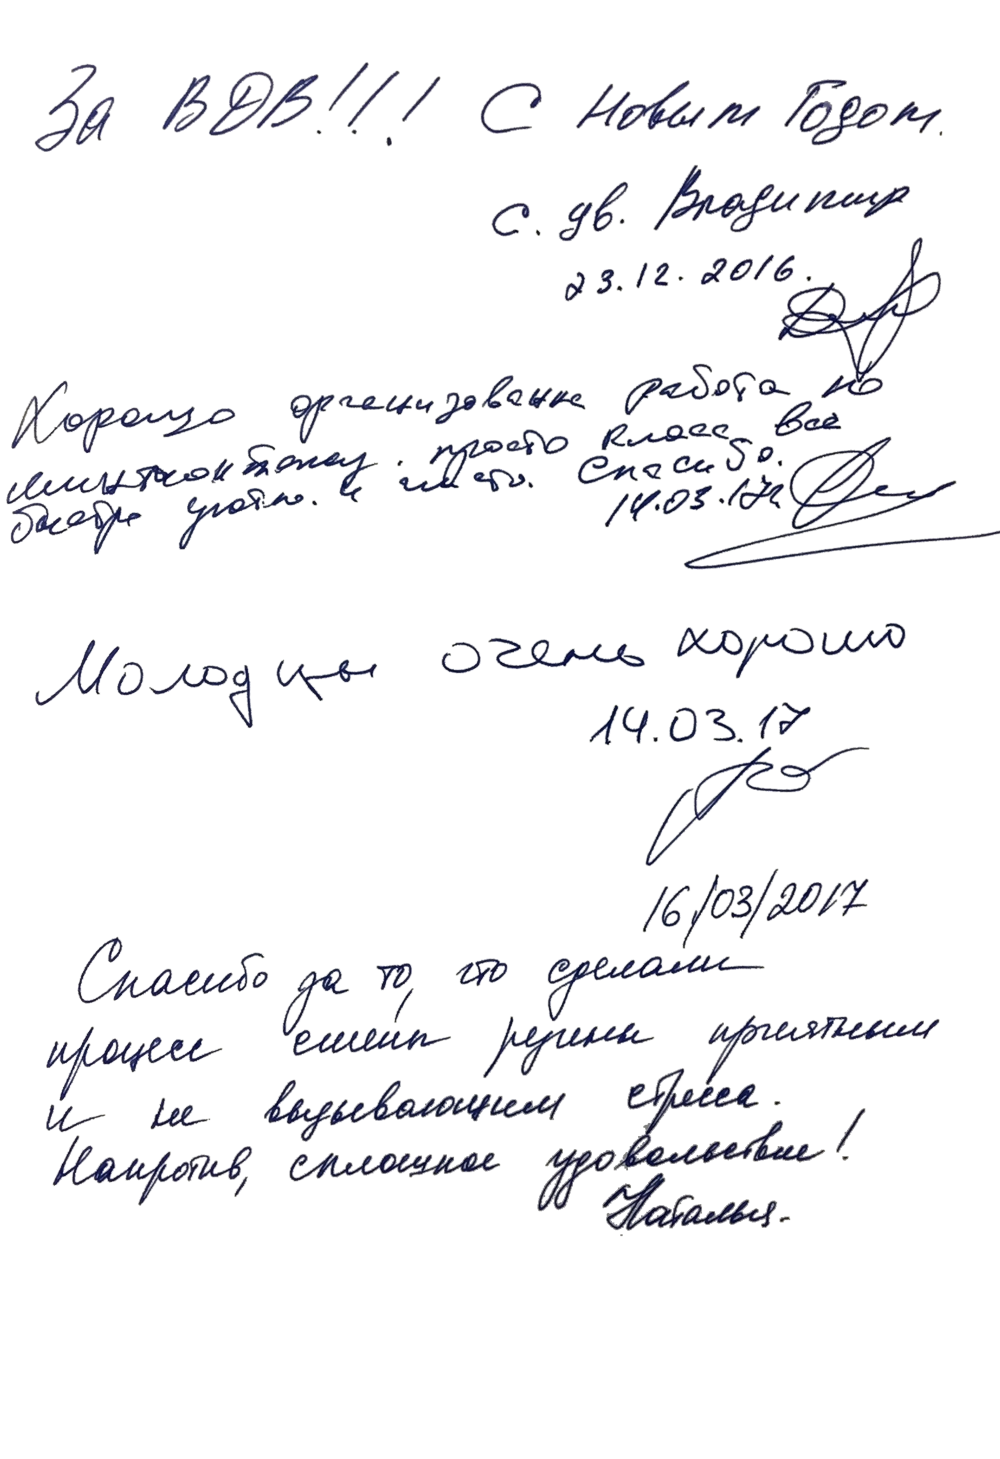 За ВДВ!!! С Новым Годом.
С. ув. Владимир
23.12.2016.
Хорошо организована работа по
просто класс все
быстро уютно. и чисто. Спасибо.
14.03.17г
Молодцы очень хорошо
14.03.17
16/03/2017
Спасибо за то, что сделали
процесс смены резины приятным
и не вызывающим стресса.
Напротив, сплошное удовольствие!
Наталья.